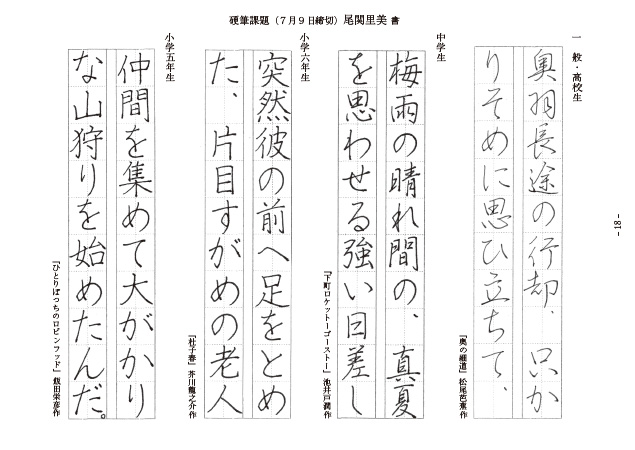 硬筆課題（７月９日締切）尾関里美 書
一 般・高校生
奥羽長途の行却、只か
りそめに思ひ立ちて、
『奥の細道』松尾芭蕉作
中学生
梅雨の晴れ間の、真夏
を思わせる強い日差し
『下町ロケットーゴーストー』池井戸潤作
小学六年生
突然彼の前へ足をとめ
た、片目すがめの老人
『杜子春』芥川龍之介作
小学五年生
仲間を集めて大がかり
な山狩りを始めたんだ。
『ひとりぼっちのロビンフッド』飯田栄彦作
- 18 -